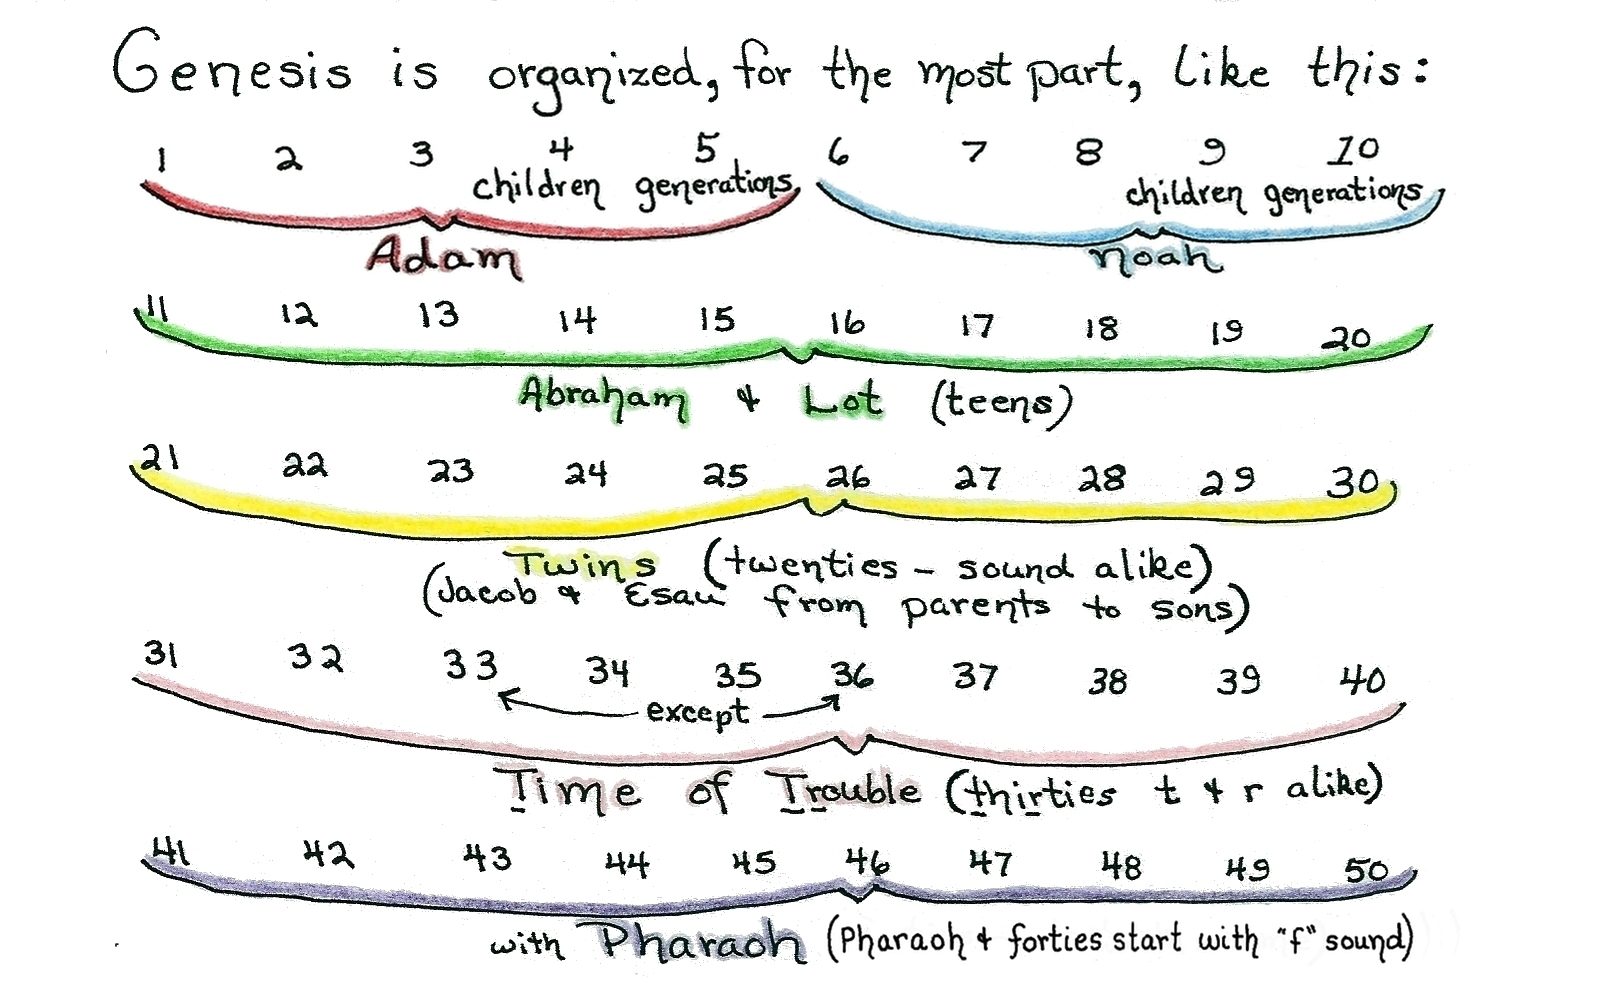 Genesis is organized, for the most part, like this:
1 2 3 4 5 6 7 8 9 10
children generations children generations
Adam Noah
11 12 13 14 15 16 17 18 19 20
Abraham & Lot (teens)
21 22 23 24 25 26 27 28 29 30
Twins (twenties – sound alike)
(Jacob & Esau from parents to sons)
31 32 33 34 35 36 37 38 39 40
except
Time of Trouble (thirties t & r alike)
41 42 43 44 45 46 47 48 49 50
with Pharaoh (Pharaoh & forties start with "f" sound)